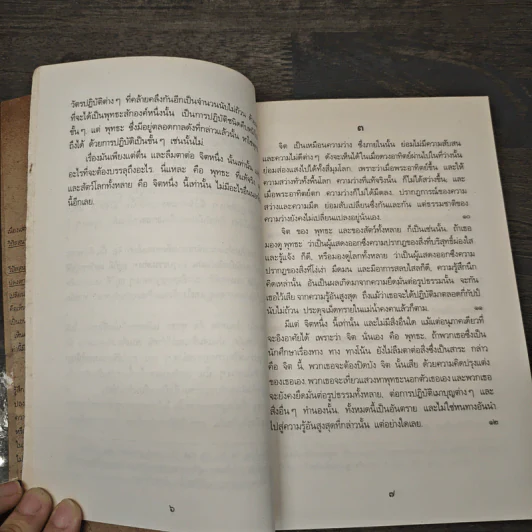 วัตรปฏิบัติต่างๆ ที่คล้ายคลึงกันอีกเป็นจำนวนนับไม่ถ้วน
ที่จะได้เป็นพุทธะสักองค์หนึ่งนั้น เป็นการปฏิบัติชนิดที่
ขั้นๆ แต่ พุทธะ ซึ่งมีอยู่ตลอดกาลดังที่กล่าวแล้วนั้น
ถึงได้ ด้วยการปฏิบัติเป็นขั้นๆ เช่นนั้นไม่.
เรื่องมันเพียงแต่ตื่น และลืมตาต่อ จิตหนึ่ง นั้นเท่านั้น
อะไรที่จะต้องบรรลุถึงอะไร. นี่แหละ คือ พุทธะ
และสัตว์โลกทั้งหลาย คือ จิตหนึ่ง นี้เท่านั้น ไม่มีอะไรอื่น
นี้อีกเลย.
๖
๓
จิต เป็นเหมือนความว่าง ซึ่งภายในนั้น ย่อมไม่มีความสับสน
และความไม่ดีต่างๆ ดังจะเห็นได้ในเมื่อดวงอาทิตย์ผ่านไปในที่ว่างนั้น
ย่อมส่องแสงไปได้ทั้งสี่มุมโลก. เพราะว่าเมื่อพระอาทิตย์ขึ้น และให้
ความสว่างทั่วทั้งพื้นโลก ความว่างที่แท้จริงนั้น ก็ไม่ได้สว่างขึ้น, และ
เมื่อพระอาทิตย์ตก ความว่างก็ไม่ได้มืดลง. ปรากฏการณ์ของความ
สว่างและความมืด ย่อมสับเปลี่ยนซึ่งกันและกัน แต่ธรรมชาติของ
ความว่างยังคงไม่เปลี่ยนแปลงอยู่นั่นเอง. ๑๐
จิต ของ พุทธะ และของสัตว์ทั้งหลาย ก็เป็นเช่นนั้น. ถ้าเรา
มองดู พุทธะ ว่าเป็นผู้แสดงออกซึ่งความปรากฏของสิ่งที่บริสุทธิ์ผ่องใส
และรู้แจ้ง ก็ดี, หรือมองดูโลกทั้งหลาย ว่าเป็นผู้แสดงออกซึ่งความ
ปรากฏของสิ่งที่โง่เง่า มืดมน และมีอาการสลบไสลก็ดี, ความรู้สึกนึก
คิดเหล่านั้น อันเป็นผลเกิดมาจากความยึดมั่นต่อรูปธรรมนั้น จะกัน
เธอไว้เสีย จากความรู้อันสูงสุด ถึงแม้ว่าเธอจะได้ปฏิบัติมาตลอดกี่กัปป์
นับไม่ถ้วน ประดุจเม็ดทรายในแม่น้ำคงคาแล้วก็ตาม. ๑๑
มีแต่ จิตหนึ่ง นี้เท่านั้น และไม่มีสิ่งอื่นใด แม้แต่อนุภาคเดียวที่
จะอิงอาศัยได้ เพราะว่า จิต นั่นเอง คือ พุทธะ. ถ้าพวกเธอซึ่งเป็น
นักศึกษาเรื่องทาง ทาง ทางโน้น ยังไม่ลืมตาต่อสิ่งซึ่งเป็นสาระ กล่าว
คือ จิต นี้, พวกเธอจะต้องปิดบัง จิต นั้นเสีย ด้วยความคิดปรุงแต่ง
ของเธอเอง พวกเธอจะเที่ยวแสวงหาพุทธะนอกตัวเธอเอง และพวกเธอ
จะยังคงยึดมั่นต่อรูปธรรมทั้งหลาย, ต่อการปฏิบัติเมาบุญต่างๆ และ
สิ่งอื่นๆ ทำนองนั้น. ทั้งหมดนี้เป็นอันตราย และไม่ใช่หนทางอันนำ
ไปสู่ความรู้อันสูงสุดที่กล่าวนั้น แต่อย่างใดเลย. ๑๒
๗